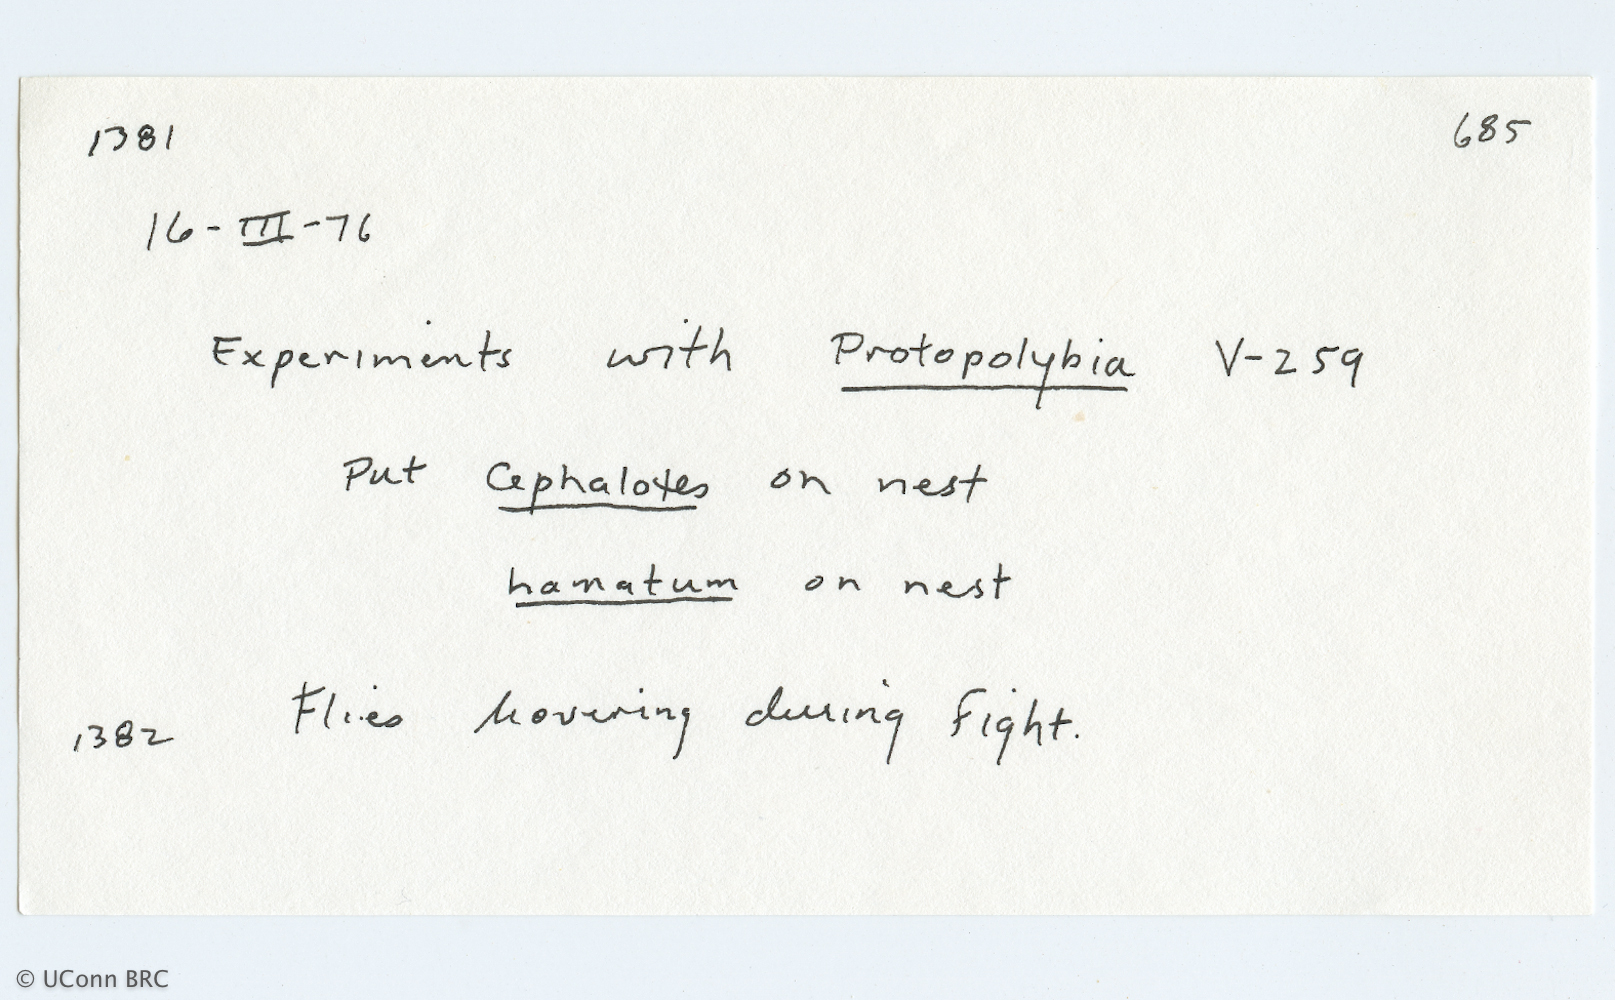 1381 685
16-III-76
Experiments with Protopolybia V-259
Put Cephalotes on nest
hamatum on nest
1382 Flies hovering during fight.
© UConn BRC